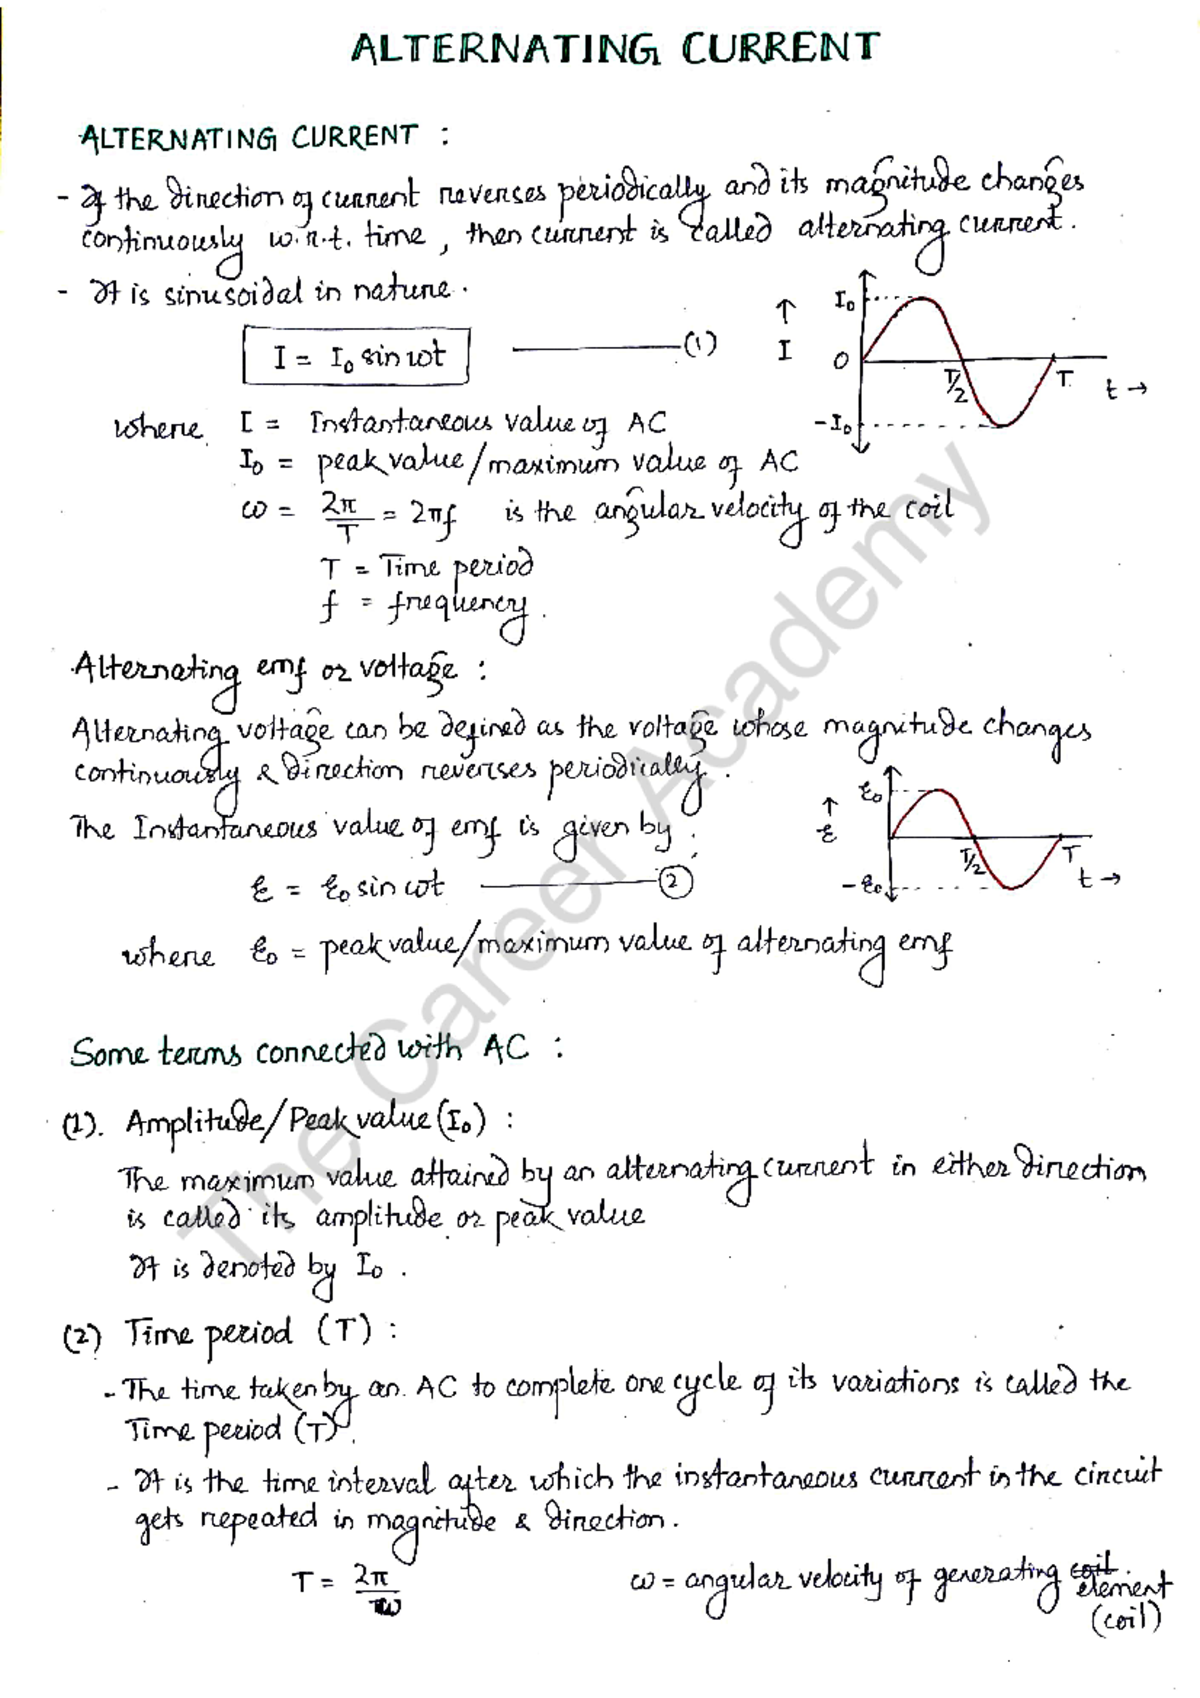 ALTERNATING CURRENT
ALTERNATING CURRENT :
- If the direction of current reverses periodically and its magnitude changes
continuously w.r.t. time, then current is called alternating current.
- It is sinusoidal in nature.
I = I₀ sin ωt ——— (1)
I₀
↑
I
O
T/2
T
t →
-I₀
where I = Instantaneous value of AC
I₀ = peak value/maximum value of AC
ω = 2π/T = 2πf is the angular velocity of the coil
T = Time period
f = frequency.
Alternating emf or voltage :
Alternating voltage can be defined as the voltage whose magnitude changes
continuously & direction reverses periodically.
The Instantaneous value of emf is given by.
ε = ε₀ sin ωt ——— (2)
ε₀
↑
ε
T/2
T
t →
-ε₀
where ε₀ = peak value/maximum value of alternating emf
Some terms connected with AC :
(1). Amplitude/Peak value (I₀) :
The maximum value attained by an alternating current in either direction
is called its amplitude or peak value
It is denoted by I₀.
(2) Time period (T) :
- The time taken by an AC to complete one cycle of its variations is called the
Time period (T).
- It is the time interval after which the instantaneous current in the circuit
gets repeated in magnitude & direction.
T = 2π/ω ω = angular velocity of generating coil.
element
(coil)
The Career Academy